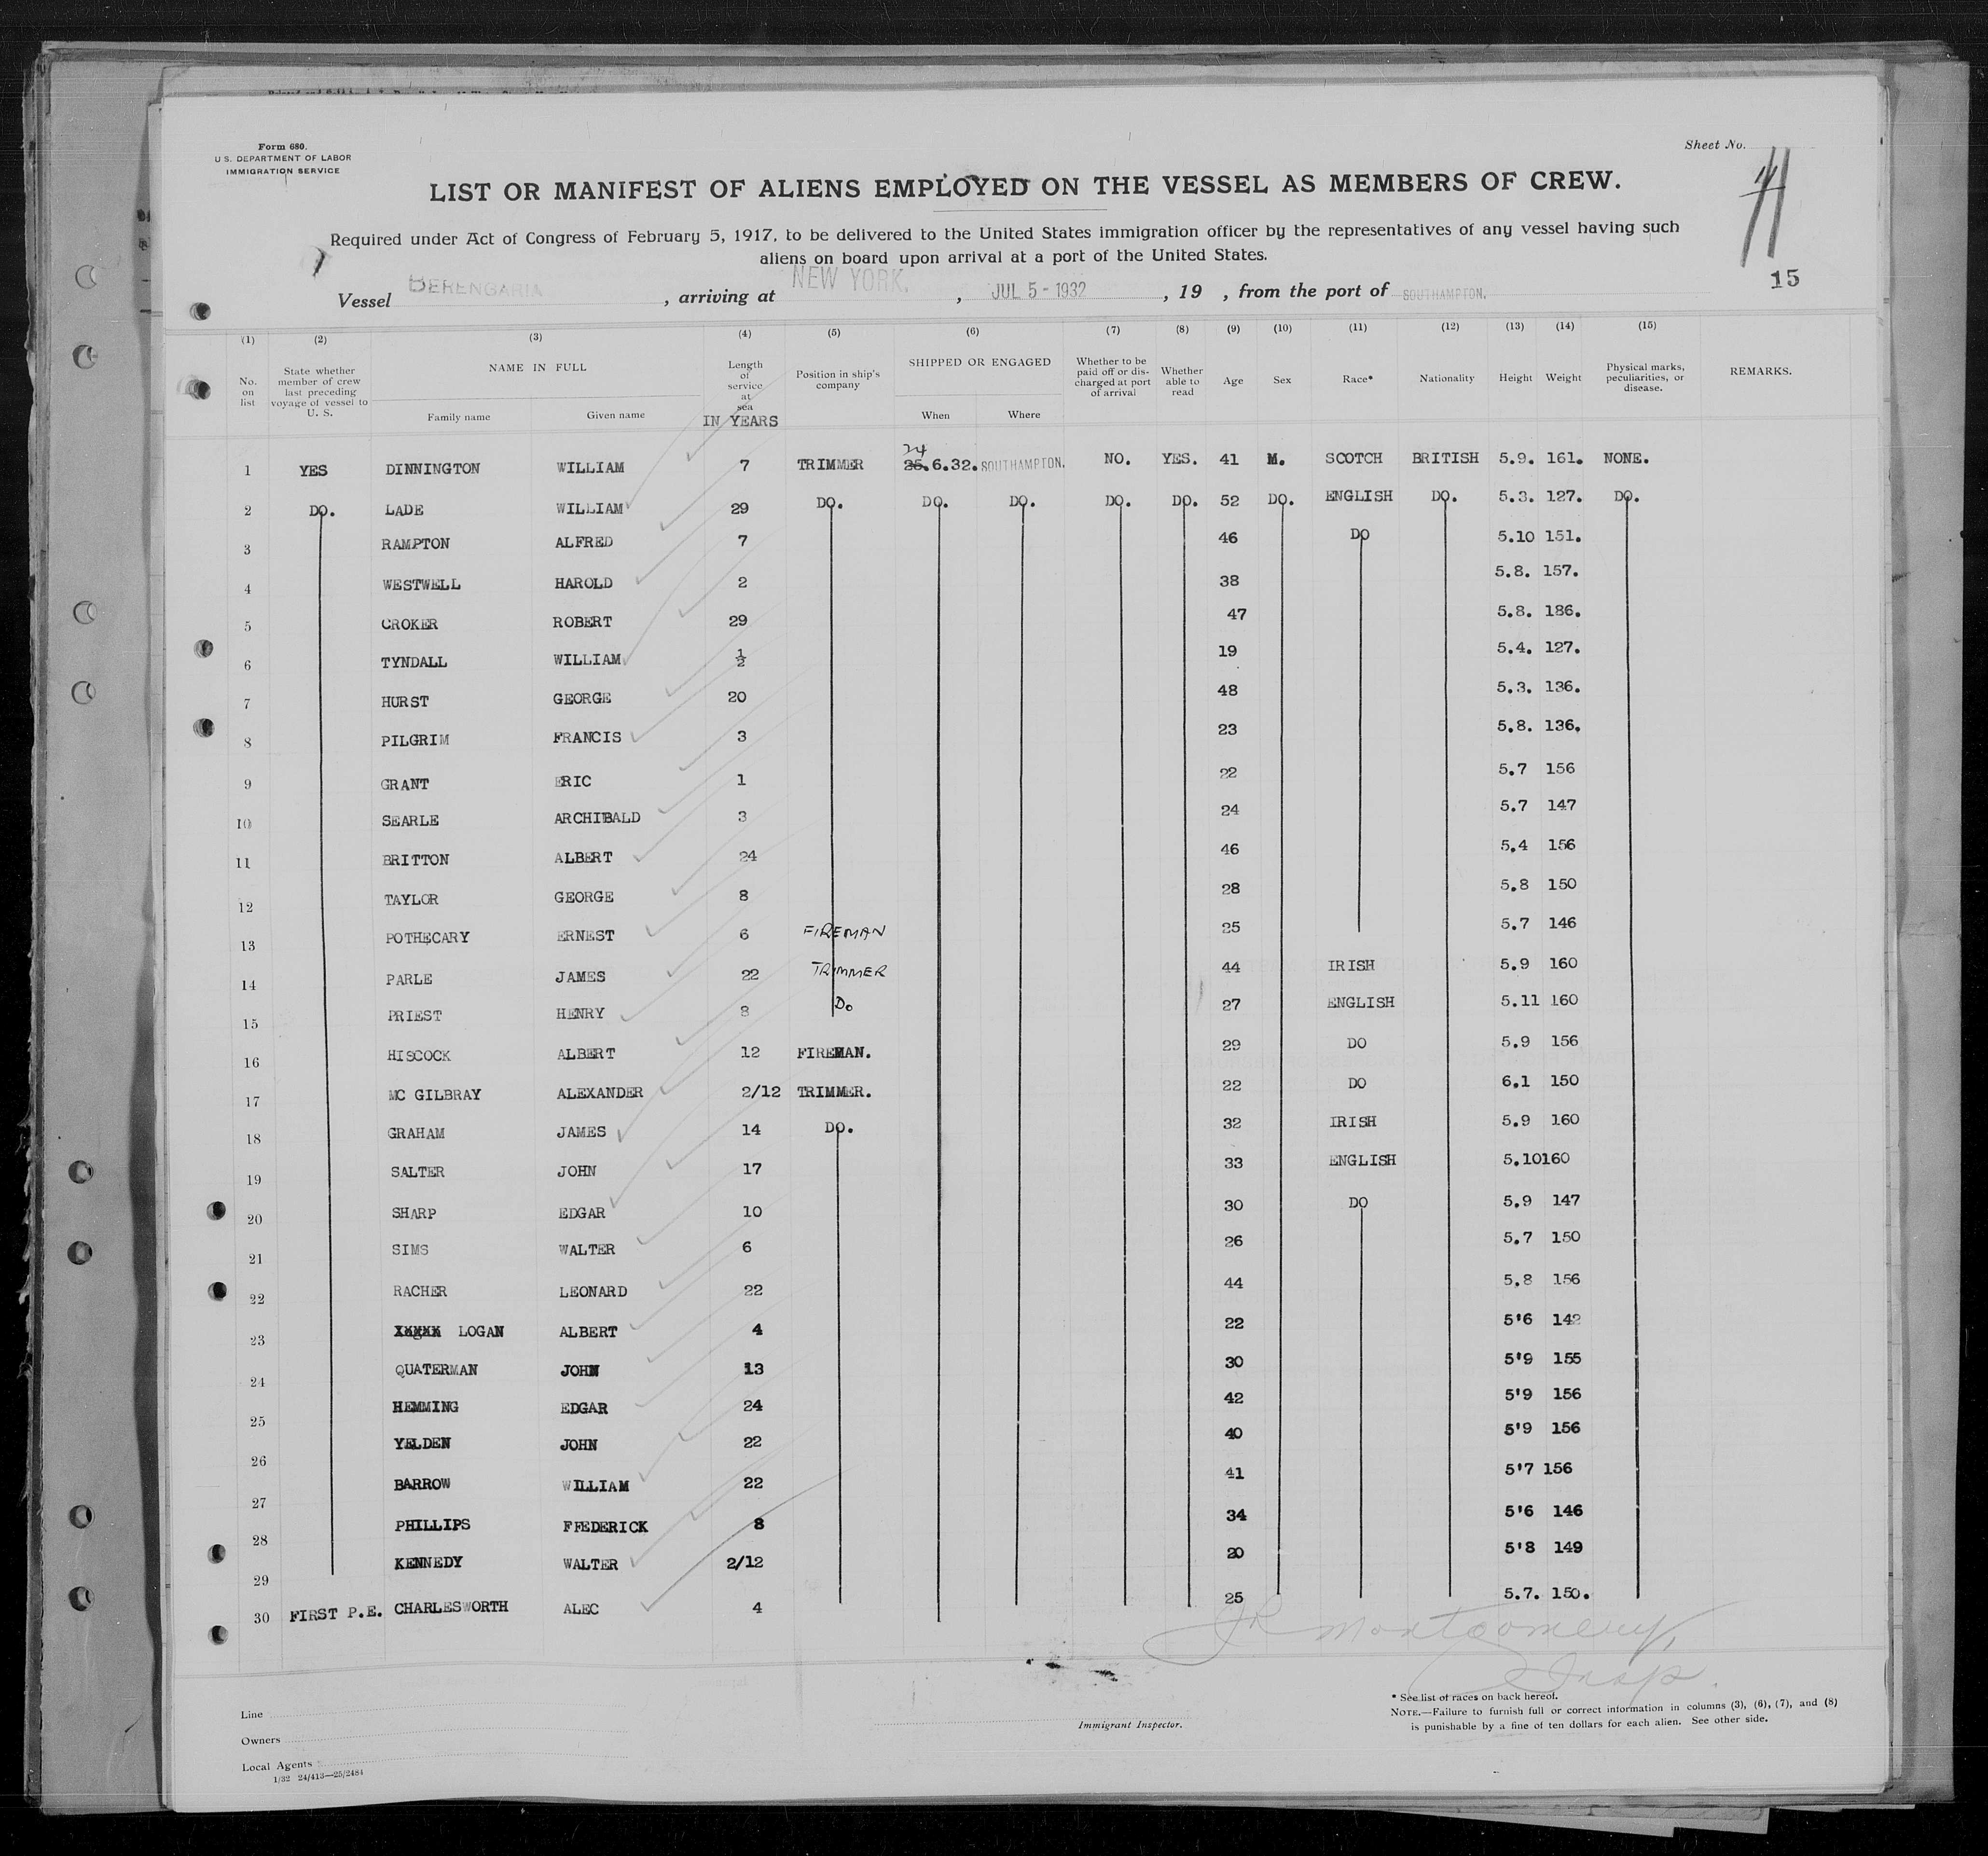 Form 680.
U. S. DEPARTMENT OF LABOR
IMMIGRATION SERVICE
Sheet No.
LIST OR MANIFEST OF ALIENS EMPLOYED ON THE VESSEL AS MEMBERS OF CREW.
Required under Act of Congress of February 5, 1917, to be delivered to the United States immigration officer by the representatives of any vessel having such
aliens on board upon arrival at a port of the United States.
15
Vessel BERENGARIA, arriving at NEW YORK., JUL 5 - 1932, 19 , from the port of SOUTHAMPTON.
(1) (2) (3) (4) (5) (6) (7) (8) (9) (10) (11) (12) (13) (14) (15)
No. on list State whether member of crew last preceding voyage of vessel to U. S. NAME IN FULL Family name Given name Length of service at sea IN YEARS Position in ship's company SHIPPED OR ENGAGED When Where Whether to be paid off or discharged at port of arrival Whether able to read Age Sex Race* Nationality Height Weight Physical marks, peculiarities, or disease. REMARKS.
1 YES DINNINGTON WILLIAM 7 TRIMMER 24 25.6.32. SOUTHAMPTON. NO. YES. 41 M. SCOTCH BRITISH 5.9. 161. NONE.
2 DO. LADE WILLIAM 29 DO. DO. DO. DO. DO. 52 DO. ENGLISH DO. 5.3. 127. DO.
3 RAMPTON ALFRED 7 46 DO 5.10 151.
4 WESTWELL HAROLD 2 38 5.8. 157.
5 CROKER ROBERT 29 47 5.8. 186.
6 TYNDALL WILLIAM 1/2 19 5.4. 127.
7 HURST GEORGE 20 48 5.3. 136.
8 PILGRIM FRANCIS 3 23 5.8. 136.
9 GRANT ERIC 1 22 5.7 156
10 SEARLE ARCHIBALD 3 24 5.7 147
11 BRITTON ALBERT 24 46 5.4 156
12 TAYLOR GEORGE 8 28 5.8 150
13 POTHECARY ERNEST 6 FIREMAN 25 5.7 146
14 PARLE JAMES 22 TRIMMER 44 IRISH 5.9 160
15 PRIEST HENRY 8 Do 27 ENGLISH 5.11 160
16 HISCOCK ALBERT 12 FIREMAN. 29 DO 5.9 156
17 MC GILBRAY ALEXANDER 2/12 TRIMMER. 22 DO 6.1 150
18 GRAHAM JAMES 14 DO. 32 IRISH 5.9 160
19 SALTER JOHN 17 33 ENGLISH 5.10 160
20 SHARP EDGAR 10 30 DO 5.9 147
21 SIMS WALTER 6 26 5.7 150
22 RACHER LEONARD 22 44 5.8 156
23 XXXXX LOGAN ALBERT 4 22 5'6 142
24 QUATERMAN JOHN 13 30 5'9 155
25 HEMMING EDGAR 24 42 5'9 156
26 YELDEN JOHN 22 40 5'9 156
27 BARROW WILLIAM 22 41 5'7 156
28 PHILLIPS FFEDERICK 8 34 5'6 146
29 KENNEDY WALTER 2/12 20 5'8 149
30 FIRST P.E. CHARLESWORTH ALEC 4 25 5.7. 150.
JR Montgomery,
Insp.
Line
Owners
Local Agents
1/32 24/413—25/2484
Immigrant Inspector.
* See list of races on back hereof.
NOTE.—Failure to furnish full or correct information in columns (3), (6), (7), and (8)
is punishable by a fine of ten dollars for each alien. See other side.